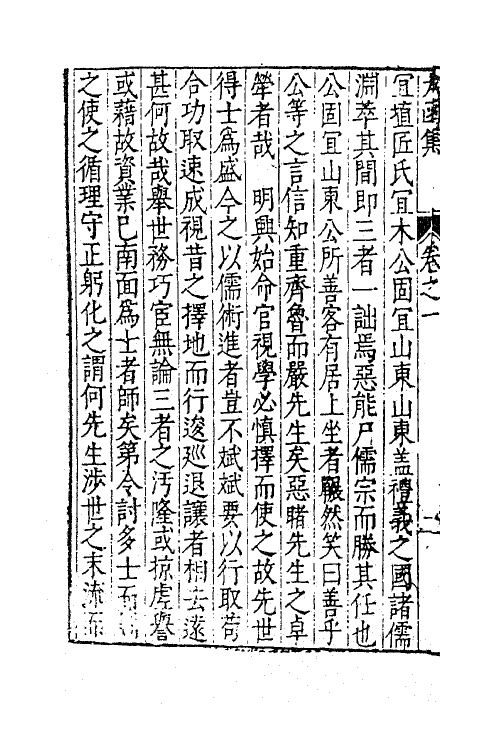 太函集 卷之一
宜埴匠氏宜木公固宜山東山東蓋禮義之國諸儒
淵萃其間即三者一詘焉惡能尸儒宗而勝其任也
公固宜山東公所善客有居上坐者囅然笑曰善乎
公等之言信知重齊魯而嚴先生矣惡睹先生之卓
犖者哉 明興始命官視學必慎擇而使之故先世
得士爲盛今之以儒術進者豈不斌斌要以行取苟
合功取速成視昔之擇地而行逡巡退讓者相去遠
甚何故哉舉世務巧宦無論三者之汚隆或掠虛譽
或藉故資業已南面爲士者師矣第令討多士而
之使之循理守正躬化之謂何先生涉世之末流而